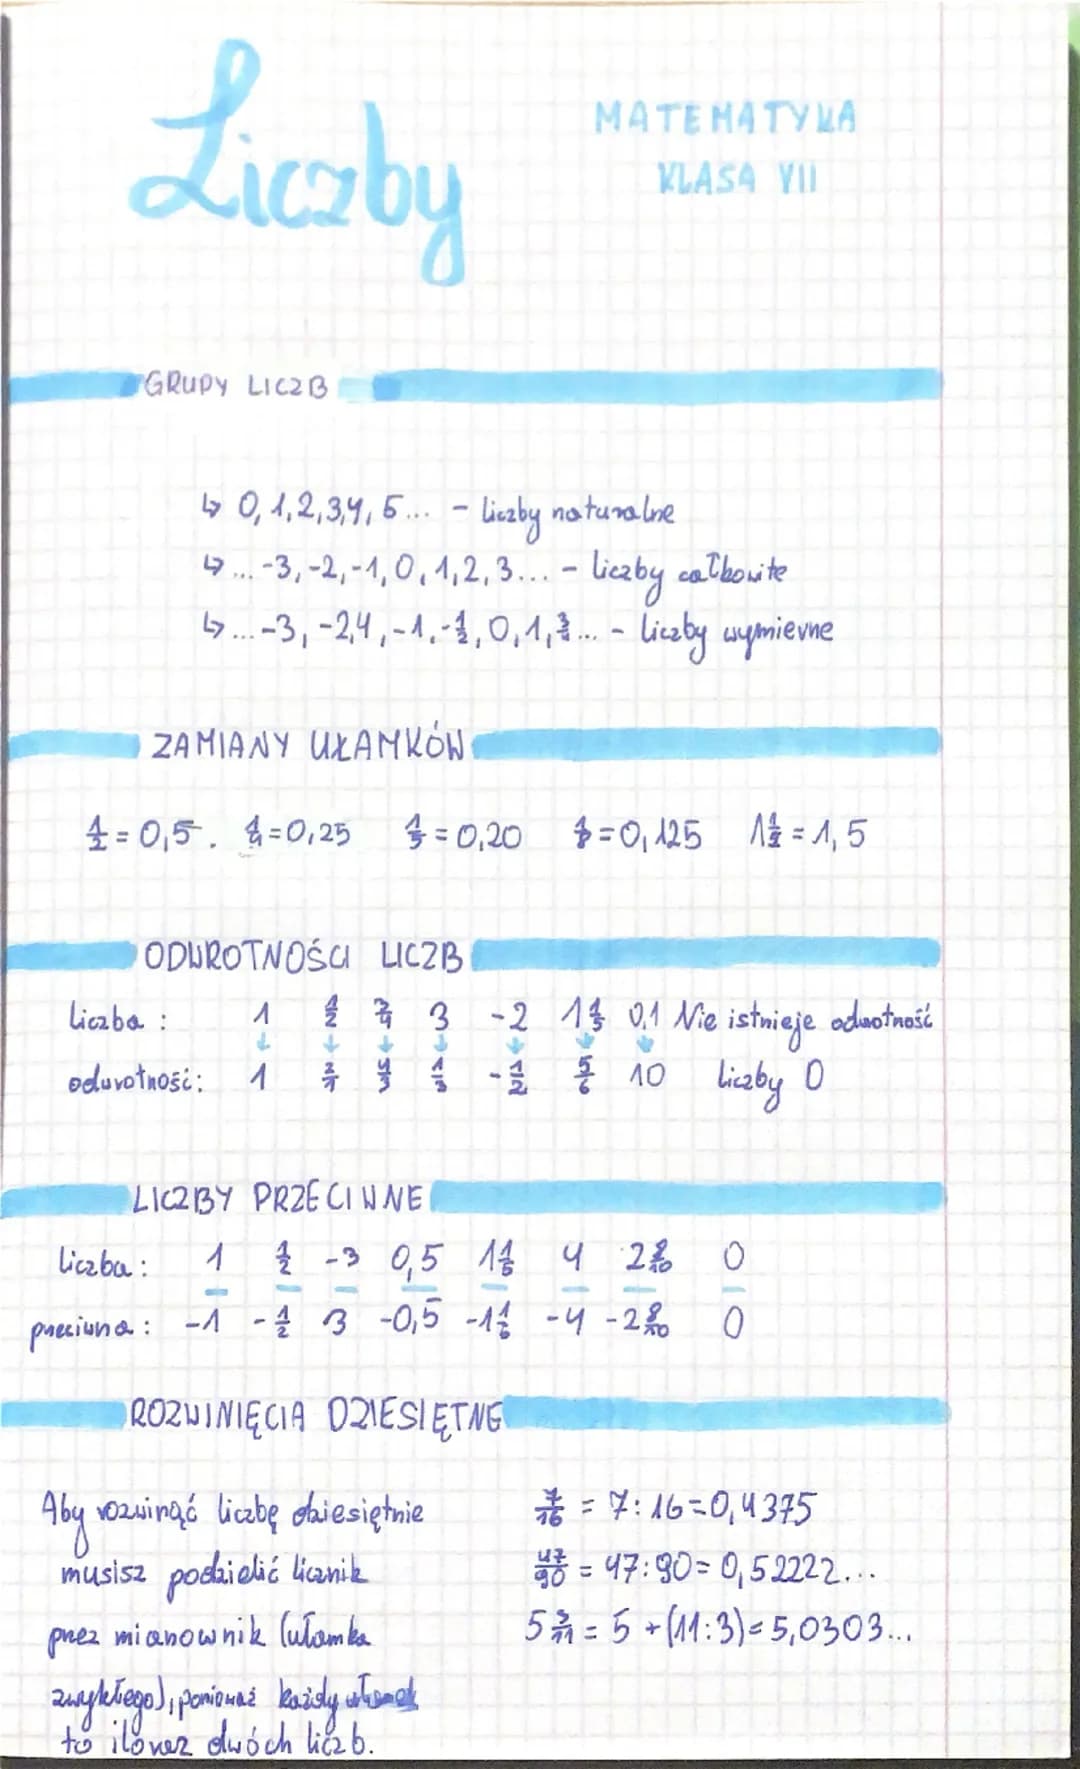 Liczby
MATEMATYKA
KLASA VII
GRUPY LICZB
↳ 0, 1, 2, 3, 4, 5... - liczby naturalne
↳ ... -3, -2, -1, 0, 1, 2, 3... - liczby całkowite
↳ ... -3, -2,4, -1, -1/2, 0, 1, 3/4... - liczby wymierne
ZAMIANY UŁAMKÓW
1/2 = 0,5. 1/4 = 0,25 1/5 = 0,20 1/8 = 0,125 1 1/2 = 1,5
ODWROTNOŚCI LICZB
liczba: 1 1/2 3/4 3 -2 1 1/5 0,1 Nie istnieje odwrotność
↓ ↓ ↓ ↓ ↓ ↓ ↓
odwrotność: 1 2/1 4/3 1/3 -1/2 5/6 10 liczby 0
LICZBY PRZECIWNE
liczba: 1 1/2 -3 0,5 1 1/6 4 2 8/10 0
przeciwna: -1 -1/2 3 -0,5 -1 1/6 -4 -2 8/10 0
ROZWINIĘCIA DZIESIĘTNE
Aby rozwinąć liczbę dziesiętnie
musisz podzielić licznik
przez mianownik (ułamka
zwykłego), ponieważ każdy ułamek
to iloraz dwóch liczb.
7/16 = 7:16=0,4375
47/90 = 47:90=0,52222...
5 3/11 = 5 + (11:3)=5,0303...